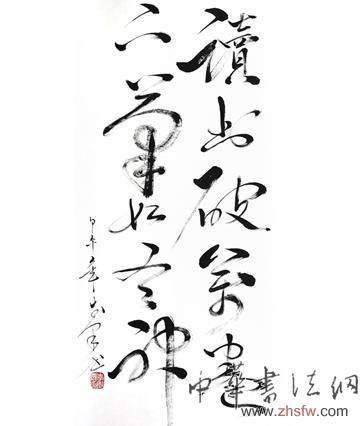 讀书破萬卷
下筆如有神
甲午年
中華書法網
www.zhsfw.com